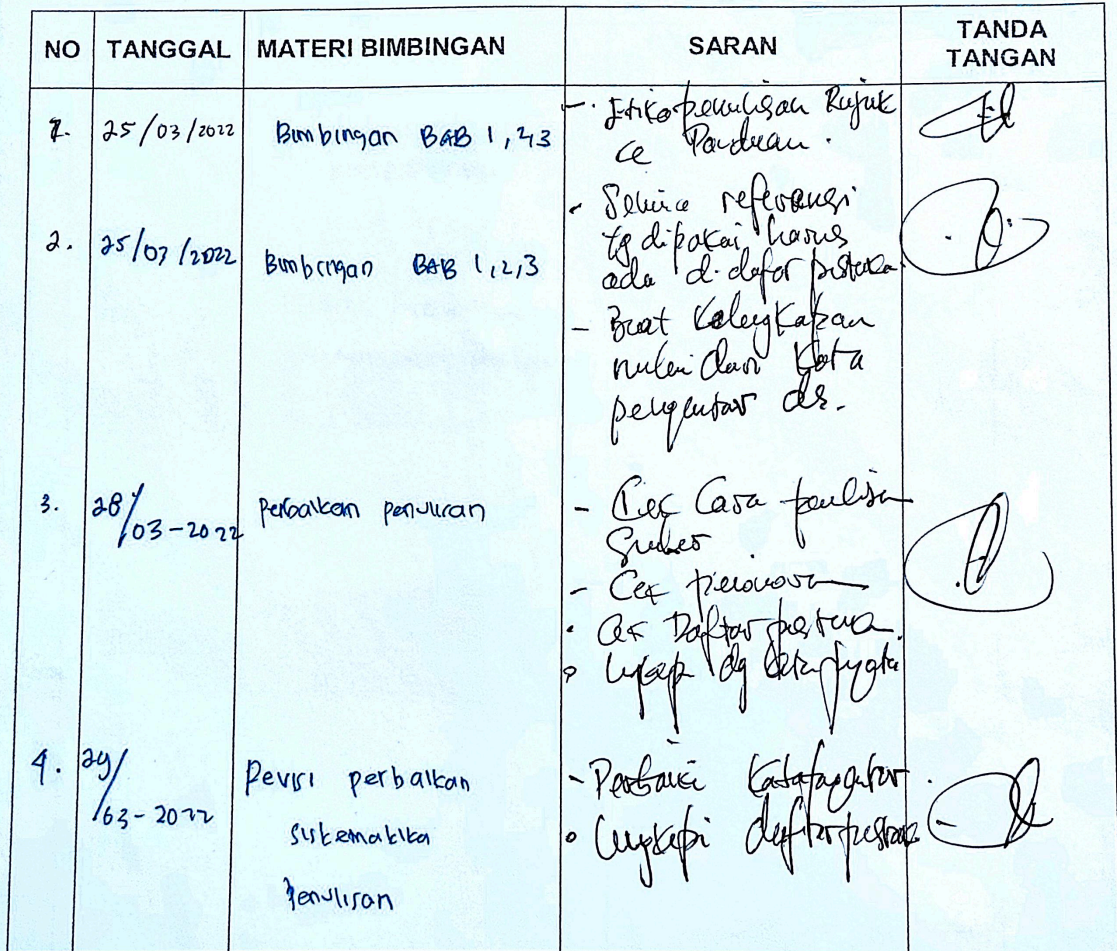 NO TANGGAL MATERI BIMBINGAN SARAN TANDA TANGAN
1. 25/03/2022 Bimbingan BAB 1, 2, 3
- Etika penulisan Rujuk
ke Panduan.
2. 25/03/2022 Bimbingan BAB 1,2,3
- Semua referensi
yg dipakai harus
ada di daftar pustaka.
- Buat Kelengkapan
mulai dari Kata
pengantar
3. 28/03-2022 Perbaikan penulisan
- Cek Cara penulisan
Sumber
- Cek
• Cek Daftar pustaka
• Lengkapi dg
4. 29/03-2022 Revisi perbaikan
sistematika
Penulisan
- Perbaiki Kata pengantar.
• Lengkapi daftar pustaka